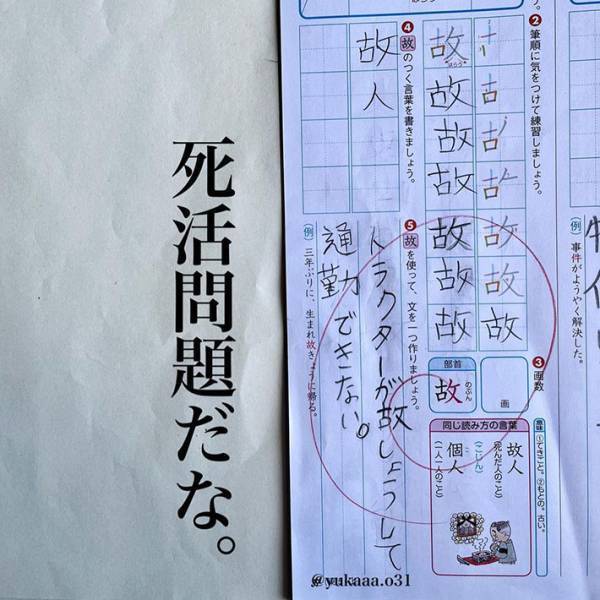 (例) 事件がようやく解決した。
❷ 筆順に気をつけて練習しましょう。
故
故
故
故
はらう
故
故
故
故
故
故
故
❸ 画数
画
部首
故
のぶん
意味 ①できごと。②もとの。古い。
同じ読み方の言葉
故人
(死んだ人のこと)
(こじん)
個人
(一人一人のこと)
❹ 故のつく言葉を書きましょう。
故人
❺ 故を使って、文を一つ作りましょう。
トラクターが故しょうして
通勤できない。
(例) 三年ぶりに、生まれ故きょうに帰る。
死活問題だな。
@yukaaa.o31